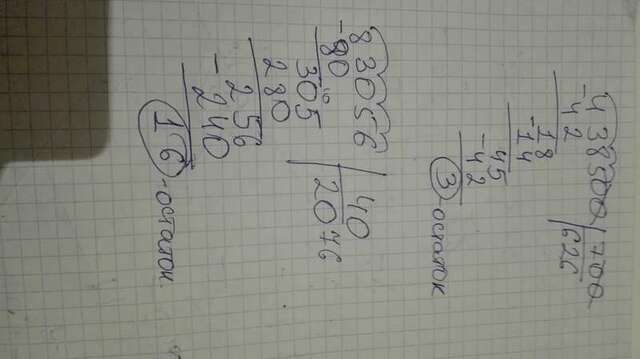 438500 | 700
-42 626
18
-14
45
-42
3-остаток
83056 | 40
-80 2076
10
305
280
256
-240
16-остаток